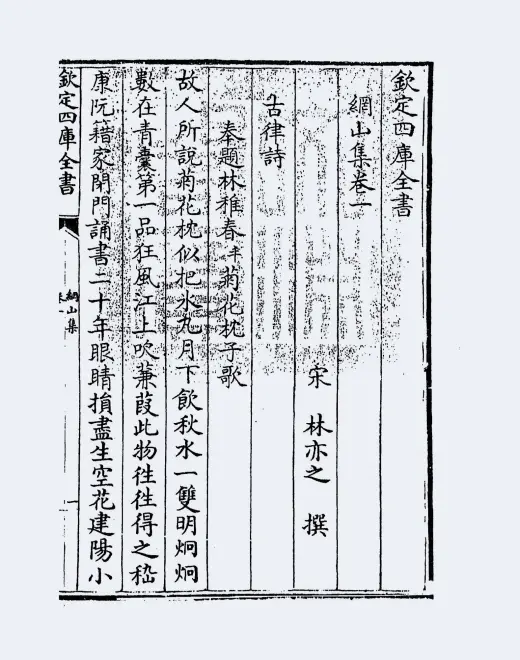 欽定四庫全書
網山集卷一
宋 林亦之 撰
古律詩
奉題林稚春丰菊花枕子歌
故人所說菊花枕似把水丸月下飲秋水一雙明炯炯
數在青囊第一品狂風江上吹蒹葭此物徃徃得之嵇
康阮籍家閉門誦書二十年眼睛損盡生空花建陽小
欽定四庫全書
網山集
卷一
一